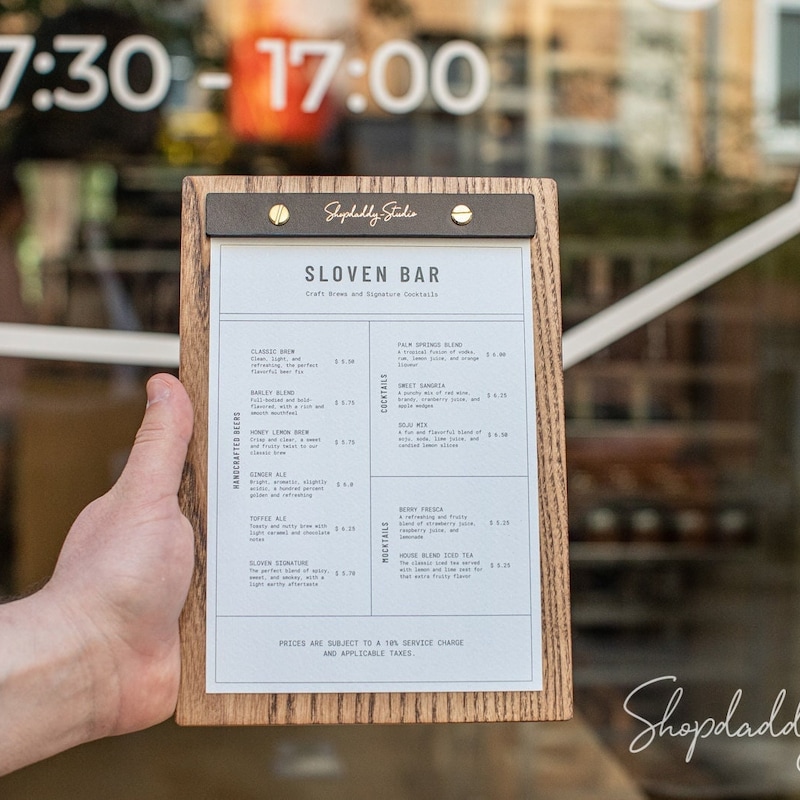 7:30 - 17:00
Shopdaddy-Studio
SLOVEN BAR
Craft Brews and Signature Cocktails
HANDCRAFTED BEERS
CLASSIC BREW
Clean, light, and
refreshing, the perfect
flavorful beer fix
$ 5.50
BARLEY BLEND
Full-bodied and bold-
flavored, with a rich and
smooth mouthfeel
$ 5.75
HONEY LEMON BREW
Crisp and clear, a sweet
and fruity twist to our
classic brew
$ 5.75
GINGER ALE
Bright, aromatic, slightly
acidic, a hundred percent
golden and refreshing
$ 6.0
TOFFEE ALE
Toasty and nutty brew with
light caramel and chocolate
notes
$ 6.25
SLOVEN SIGNATURE
The perfect blend of spicy,
sweet, and smokey, with a
light earthy aftertaste
$ 5.70
COCKTAILS
PALM SPRINGS BLEND
A tropical fukion of vodka,
rum, lemon juice, and orange
liqueur
$ 6.00
SWEET SANGRIA
A punchy mix of red wine,
brandy, cranberry juice, and
apple wedges
$ 6.25
SOJU MIX
A fun and flavorful blend of
soju, soda, lime juice, and
candied lemon slices
$ 6.50
MOCKTAILS
BERRY FRESCA
A refreshing and fruity
blend of strawberry juice,
raspberry juice, and
lemonade
$ 5.25
HOUSE BLEND ICED TEA
The classic iced tea served
with lemon and lime zest for
that extra fruity flavor
$ 5.25
PRICES ARE SUBJECT TO A 10% SERVICE CHARGE
AND APPLICABLE TAXES.
Shopdaddy